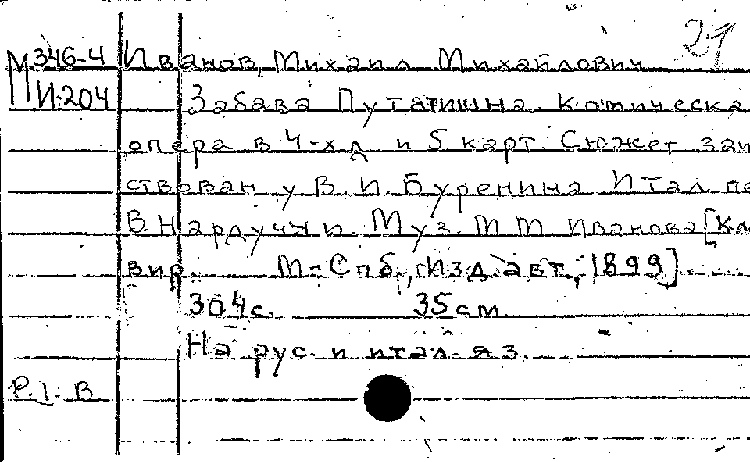 21
М 346-4 Иванов, Михаил Михайлович
М И-204 Забава Путятишна. Комическа
опера в 4-х д. и 5 карт. Сюжет заи
ствован у В. П. Буренина. Итал. пе
В. Нардуччи. Муз. М. М. Иванова [Кла
вир. М.-Спб., Изд. авт., 1899].
304 с. 35 см.
На рус. и итал. яз.
Р. I. В